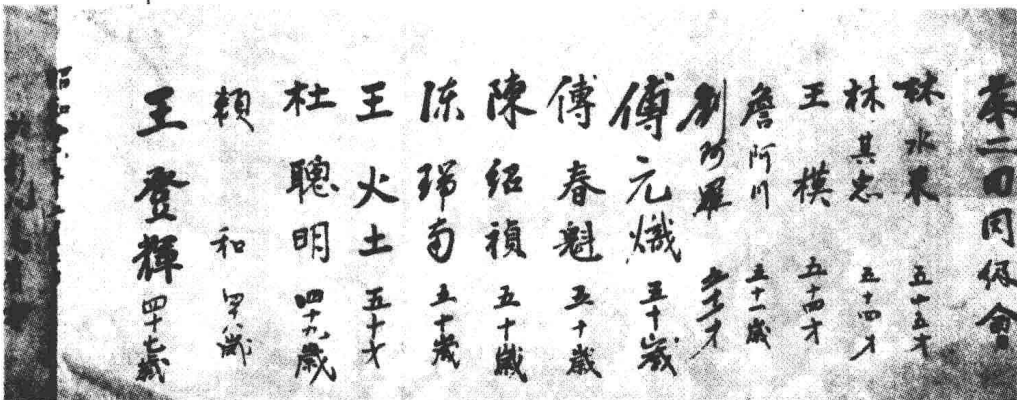 第二回同級會
林水來 五十五才
林其忠 五十四才
王模 五十四才
詹阿川 五十一歲
劉阿羅
傅元熾 五十歲
傅春魁 五十歲
陳紹禎 五十歲
陳瑞南 五十歲
王火土 五十才
杜聰明 四十九歲
賴和 四八歲
王登輝 四十七歲
昭和